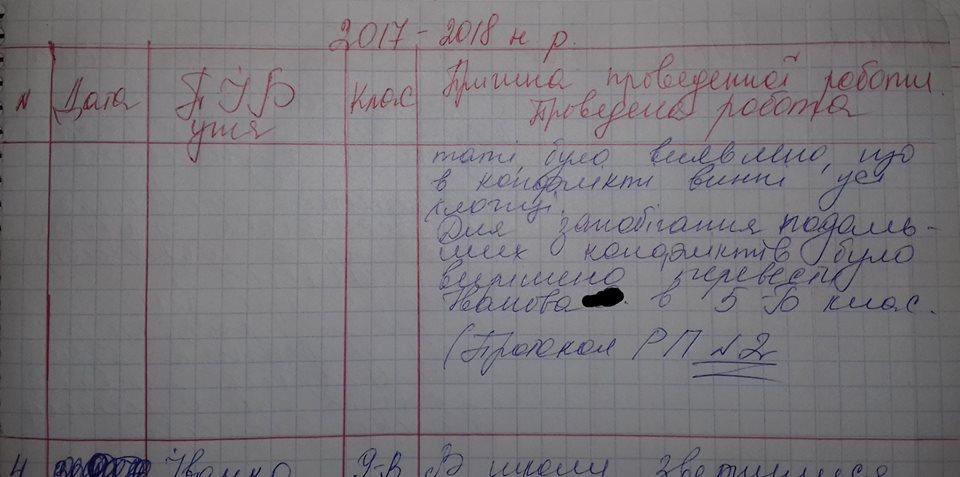 2017 - 2018 н. р.
N Дата ПІБ учня Клас Причина проведенної роботи
Проведена робота
таті було виявлено, що
в конфлікті винні усі
хлопці.
Для запобігання подаль-
ших конфліктів було
вирішено перевести
Іванова в 5-Б клас.
(Протокол РП №2
4 Іванко 9-В В школи звернулися